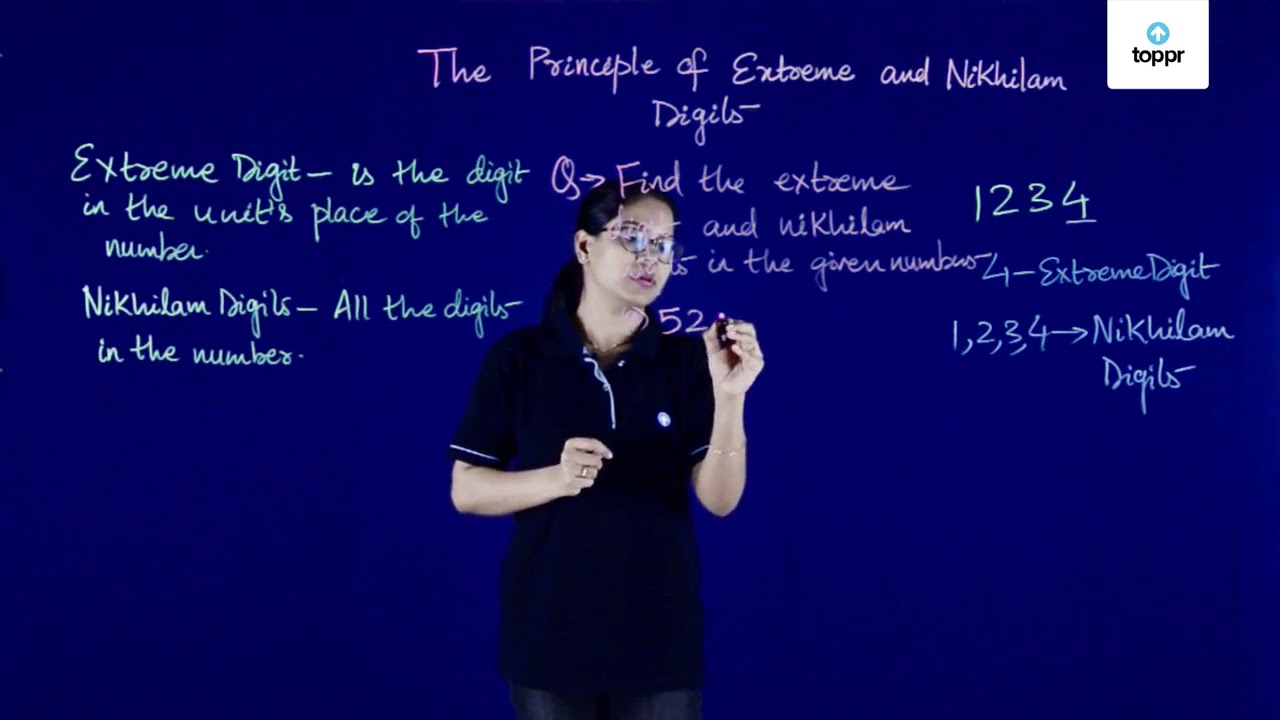 toppr
The Principle of Extreme and Nikhilam
Digits
Extreme Digit – is the digit
in the unit's place of the
number.
Nikhilam Digits – All the digits
in the number.
Q→ Find the extreme
and nikhilam
in the given numbers
52
1234
4 – Extreme Digit
1,2,3,4 → Nikhilam
Digits